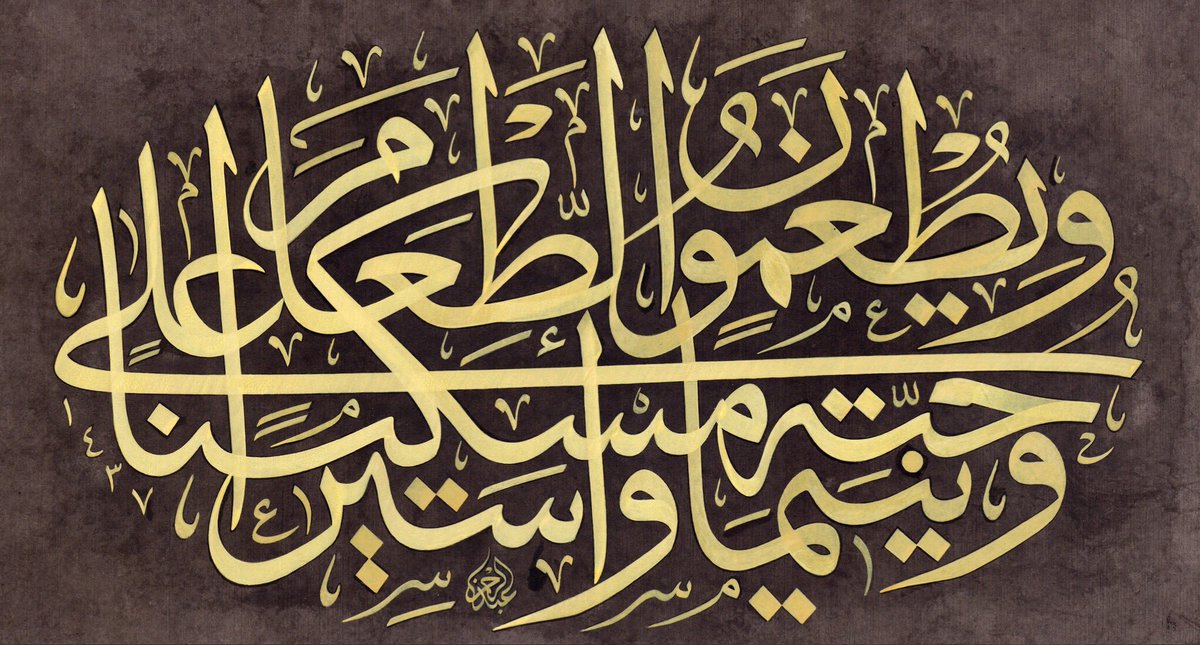 وَيُطْعِمُونَ الطَّعَامَ عَلَىٰ
حُبِّهِ مِسْكِينًا وَيَتِيمًا وَأَسِيرًا
١٤٣٧